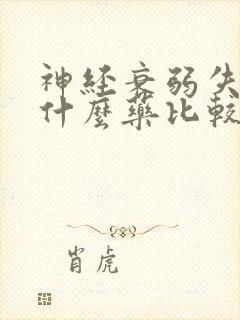 神経衰弱失
什麼藥比較
肖虎